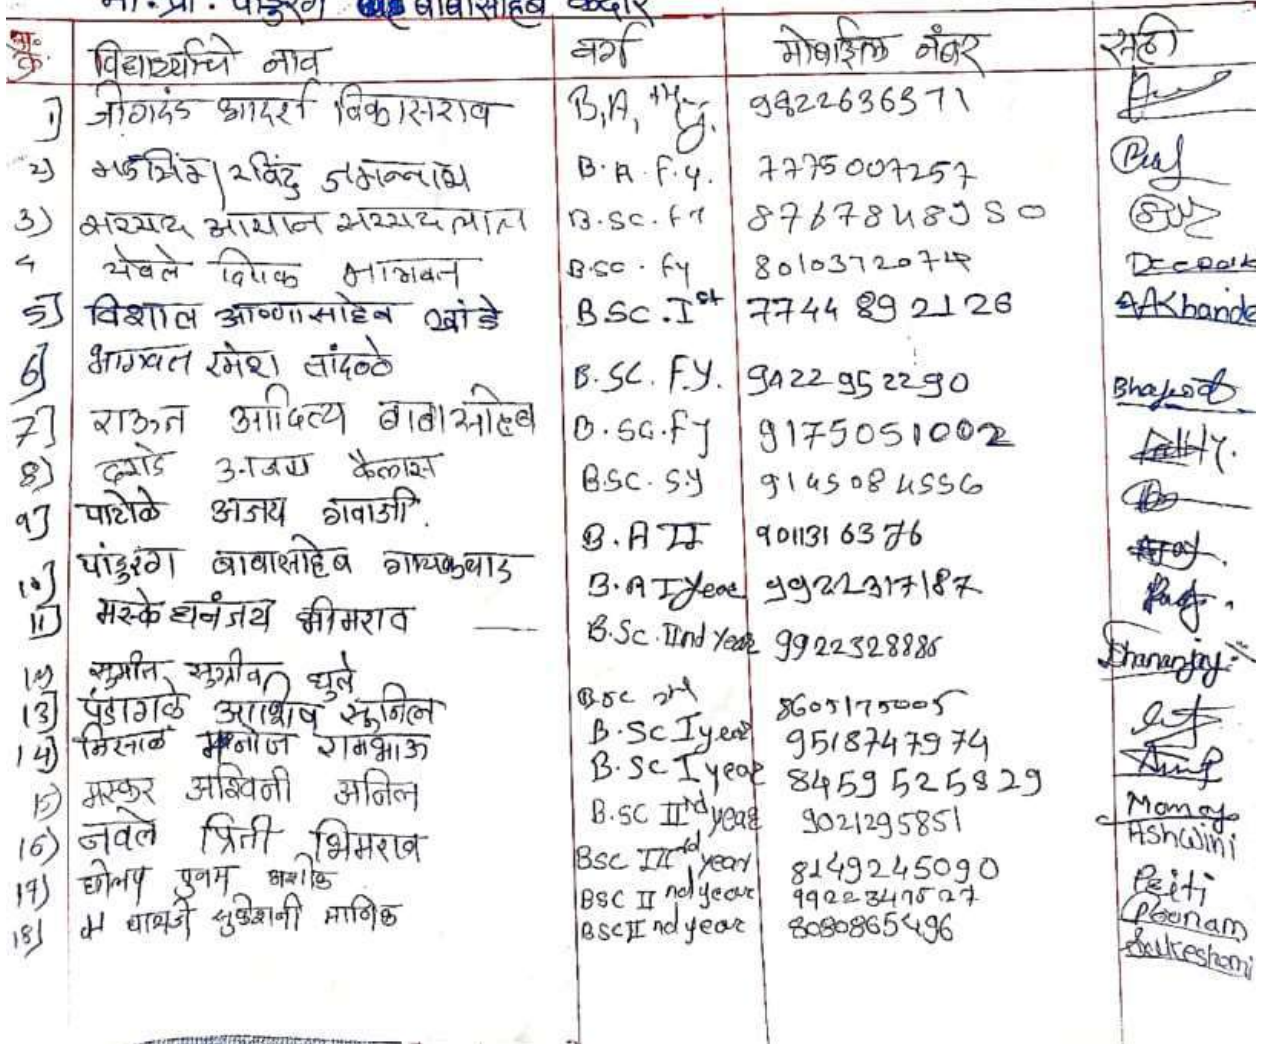 मा. प्रा. पांडुरंग बाबासाहेब केदार
अ.क्र. विद्यार्थ्याचे नाव वर्ग मोबाईल नंबर सही
1] जोगदंड आदर्श विकासराव B.A. F.y. 9822636371
2) रविंद्र जगन्नाथ B.A. F.y. 7775007257
3) सय्यद आयान सय्यद लाल B.SC. Fy 8767848950
4 येवले दिपक भागवत B.SC. Fy 8010372074 Deepak
5] विशाल आण्णासाहेब खांडे BSC. Ist 7744 892126 VAKhande
6] भागवत रमेश तांदळे B.SC. F.Y. 9422952290 Bhagwat
7] राऊत आदित्य बाबासाहेब B.SC. Fy 9175051002
8) दराडे अजय कैलास BSC. SY 9145084556
9] पाटोळे अजय गवाजी. B.A II 9011316376
10] पांडुरंग बाबासाहेब गायकवाड B.A I year 9922317187
11] मस्के धनंजय भीमराव B.Sc. IInd Year 9922328886 Dhananjay
12) सुमीत सुग्रीव धुले BSC 2nd 8605175005
13] पंडागळे आशिष सुनिल B.Sc I year 9518747974
14) मिसाळ मनोज रामभाऊ B.Sc I year 8459525829 Manoj
15) मस्कर अश्विनी अनिल B.SC IInd year 9021295851 Ashwini
16) नवले प्रिती भिमराव BSC IIIrd year 8149245090 Priti
17) घोलप पुनम अशोक BSC II nd year 9922347527 Poonam
18) वाघमारे सुकेशनी माणिक BSC II nd year 8080865496 Sukeshani